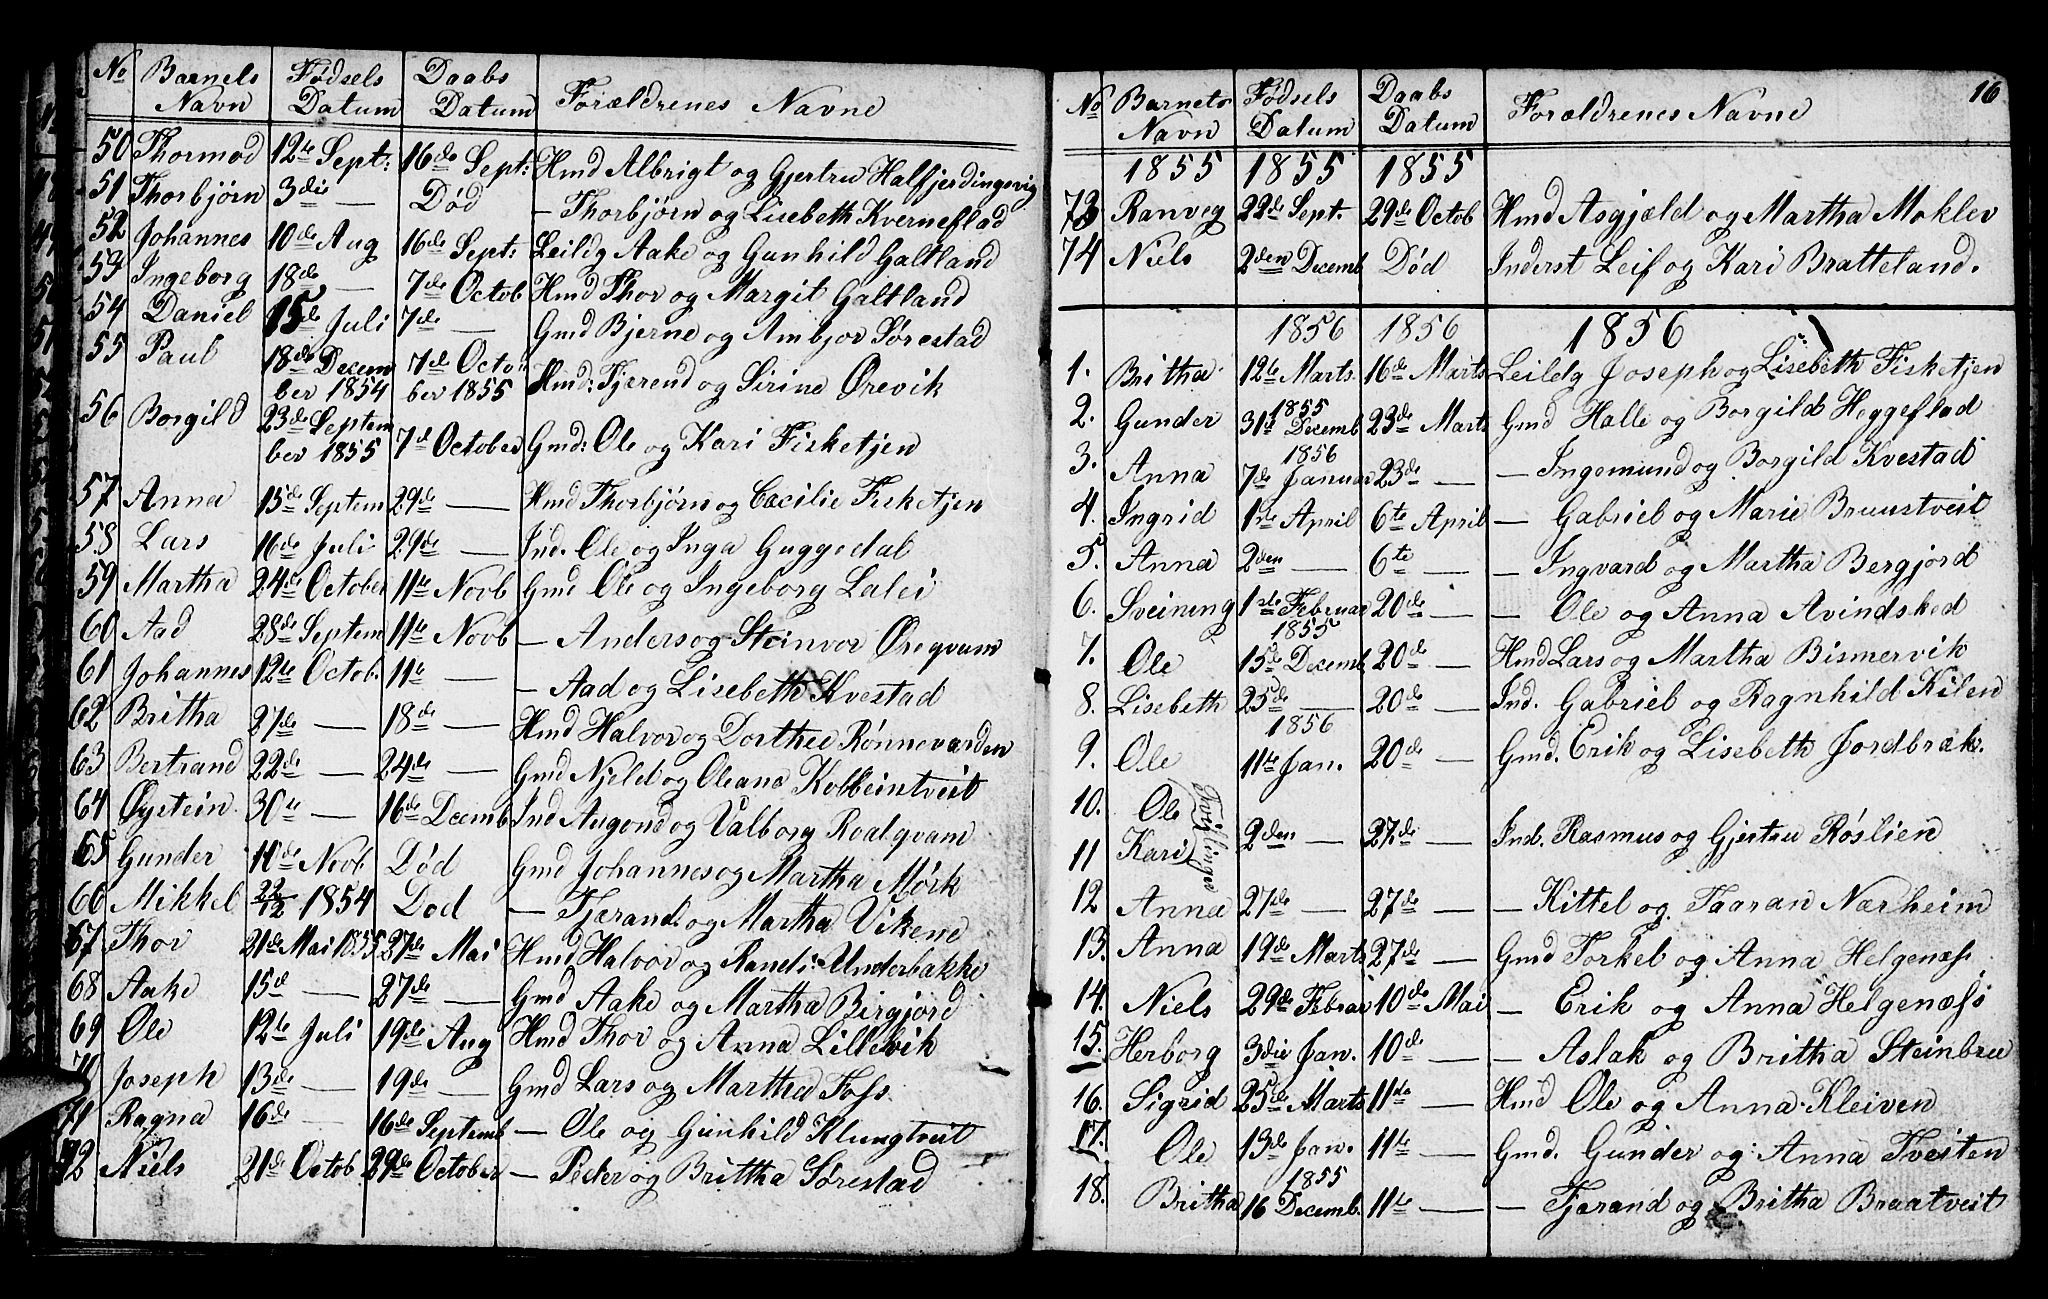 No Barnets Fødsels Daabs Forældrenes Navne
Navn Datum Datum
50 Thormod 12te Sept: 16de Sept: Hmd Albrigt og Gjertru Halfjerdingsvig
51 Thorbjørn 3die — Död — Thorbjørn og Lisebeth Kverneflad
52 Johannes 10de Aug 16de Sept: Leildg Aake og Gunhild Galtland
53 Ingeborg 18de — 7de Octob Hmd Thor og Margit Galtland
54 Daniel 15de Juli 7de — Gmd Bjerne og Ambjor Sørestad
55 Paul 18de Decem 7de Octo Hmd: Tjerend og Sirine Ørevik
ber 1854 ber 1855
56 Borgild 23de Septem 7d October Gmd: Ole og Kari Fisketjen
ber 1855
57 Anna 15de Septem 29de — Hmd Thorbjørn og Cæcilie Fisketjen
58 Lars 16de Juli 29de — Ind. Ole og Inga Guggedal
59 Martha 24de October 11te Novb Gmd Ole og Ingeborg Lalei
60 Aad 28de Septem 11te Novb — Anders og Steinvor Øreqvam
61 Johannes 12te Octob. 11te — — Aad og Lisebeth Kvestad
62 Britha 27de — 18de — Hmd Halvor og Dorthee Rønnevarden
63 Bertrand 22de — 24de — Gmd Njeld og Oleana Kolbeintveit
64 Øystein 30te — 16de Decemb Ind Augond og Valborg Roalqvam
65 Gunder 10de Novb Död Gmd Johannes og Martha Mörk
66 Mikkel 22/12 1854 Död — Tjærand og Martha Vikene
67 Thor 21de Mai 1855 27de Mai Hmd Halvor og Randi Underbakke
68 Aake 15d — 27de — Gmd Aake og Martha Birgjord
69 Ole 12te Juli 19de Aug Hmd Thor og Anna Lillevik
Joseph 13de — 19de — Gmd Lars og Martha Fofs.
71 Ragna 16de — 16de Septemb — Ole og Gunhild Klungtveit
72 Niels 21de Octob 29de October — Peder og Brittha Sørestad
16
No Barnets Fødsels Daabs Forældrenes Navne
Navn Datum Datum
1855 1855 1855
73 Ranveg 22de Sept. 29de Octob Hmd Asgjæld og Martha Moklev
74 Niels 2den Decemb Död Inderst Leif og Kari Bratteland.
1856 1856 1856
1. Britha 12te Marts. 16de Marts Leildg Joseph og Lisebeth Fisketjen
1855
2. Gunder 31te Decemb 23de Marts Gmd Halle og Borgild Heggeflad
1856
3. Anna 7de Januar 23de — — Ingemund og Borgild Kvestad
4. Ingrid 1ste April 6te April — Gabriel og Marie Bruustveit
5. Anna 2den — 6te — — Ingvard og Martha Bergjord
6. Sveining 1ste Februar 20de — — Ole og Anna Avindsked
1855
7. Ole 15de Decemb. 20de — Hmd Lars og Martha Bismervik
8. Lisebeth 25de — 20de — Ind. Gabriel og Ragnhild Kilen
1856
9. Ole 11te Jan. 20de — Gmd. Erik og Lisebeth Jordbræk.
10. Ole
Tvillinger 2den — 27de — Ind. Rasmus og Gjertru Röslien
11 Kari
12 Anna 27de — 27de — — Kittel og Taaran Nærheim
13. Anna 19de Marts 27de — Gmd Torkel og Anna Helgenæfs
14. Niels 29de Februar 10de Mai — Erik og Anna Helgenæfs
15. Herborg 3die Jan. 10de — — Aslak og Britha Steinbru
16. Sigrid 25de Marts 11te — Hmd Ole og Anna Kleiven
17. Ole 13de Jan. 11te — Gmd. Gunder og Anna Tveiten
1855
18. Britha 16 Decemb. 11te — — Tjærand og Britha Braatveit